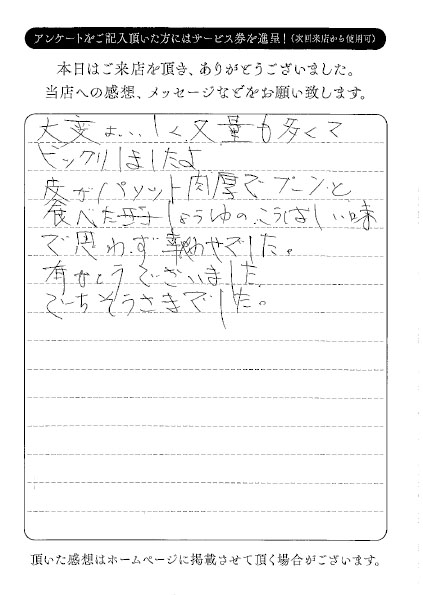 アンケートをご記入頂いた方にはサービス券を進呈!(次回来店から使用可)
本日はご来店を頂き、ありがとうございました。
当店への感想、メッセージなどをお願い致します。
大変よ...しく又量も多くて
ビックリしましたよ
皮がパリット肉厚でプーンと
食べた しょうゆのこうばしい味
で思わず でした。
有がとうございました
ごちそうさまでした。
頂いた感想はホームページに掲載させて頂く場合がございます。